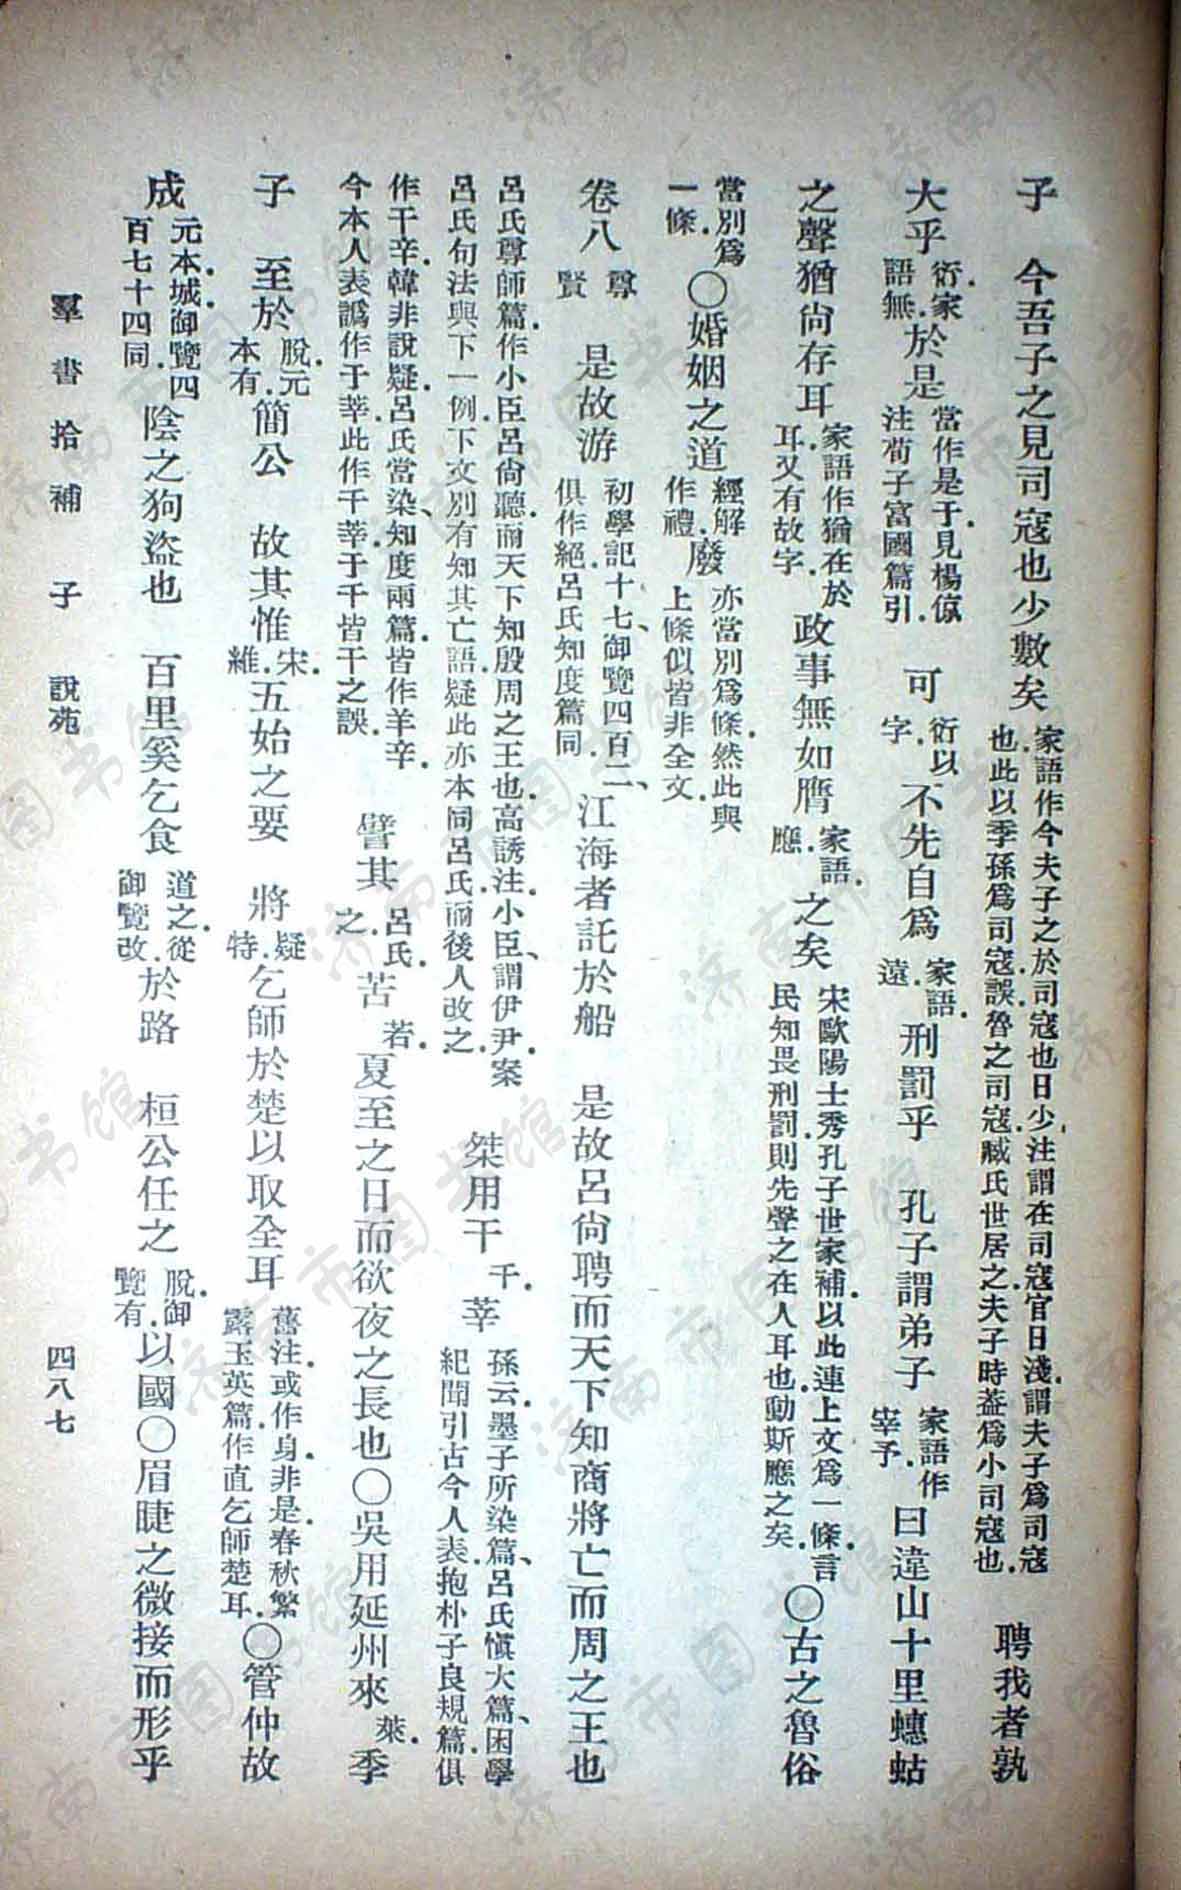 子 今吾子之見司寇也少數矣 家語作今夫子之於司寇也日少.注謂在司寇官日淺.謂夫子爲司寇也.此以季孫爲司寇.誤.魯之司寇.臧氏世居之.夫子時葢爲小司寇也. 聘我者孰
大乎 衍.家語無. 於是 當作是于.見楊倞注荀子富國篇引. 可 衍以字. 不先自爲 家語.遠. 刑罰乎 孔子謂弟子 家語作宰予. 曰違山十里蟪蛄
之聲猶尙存耳 家語作猶在於耳.又有故字. 政事無如膺 家語.應. 之矣 宋歐陽士秀孔子世家補.以此連上文爲一條.言民知畏刑罰.則先聲之在人耳也.動斯應之矣. ○古之魯俗
當別爲一條. ○婚姻之道 經解作禮. 廢 亦當別爲條.然此與上條似皆非全文.
卷八 尊賢 是故游 初學記十七、御覽四百二、俱作絕.呂氏知度篇同. 江海者託於船 是故呂尙聘而天下知商將亡而周之王也
呂氏尊師篇.作小臣呂尙聽.而天下知殷周之王也.高誘注.小臣、謂伊尹.案呂氏句法與下一例.下文別有知其亡語.疑此亦本同呂氏.而後人改之. 桀用干 千. 莘 孫云.墨子所染篇、呂氏愼大篇、困學紀聞引古今人表.抱朴子良規篇.俱
作干辛.韓非說疑.呂氏當染、知度兩篇.皆作羊辛.今本人表譌作于莘.此作千莘.于千皆干之誤. 譬其 呂氏.之. 苦 若. 夏至之日而欲夜之長也○吳用延州來 萊. 季
子 至於 脫.元本有. 簡公 故其惟 宋.維. 五始之要 將 疑特. 乞師於楚以取全耳 舊注.或作身.非是.春秋繁露玉英篇.作直乞師楚耳. ○管仲故
成 元本.城.御覽四百七十四同. 陰之狗盜也 百里奚乞食 道之.從御覽改. 於路 桓公任之 脫.御覽有. 以國○眉睫之微接而形乎
羣書拾補 子 說苑 四八七
济南市图书馆